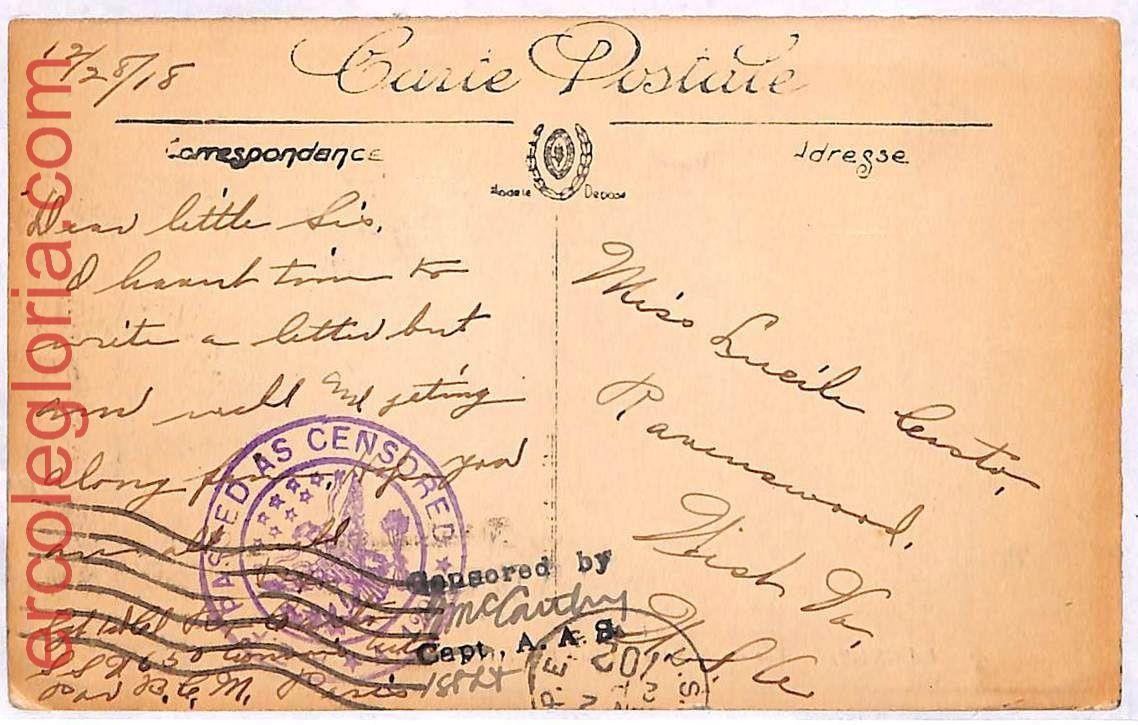 12/28/18
Carte Postale
Correspondance
Adresse
Modele Depose
Dear little Sis.
I havent time to
write a letter but
am well and geting
along fine, hope you
are all well
Miss Lucile Casto,
Ravenswood,
West Va,
U.S.A
PASSED AS CENSORED
Censored by
McCarthy
Capt., A. A. S.
Paris
ercolegloria.com